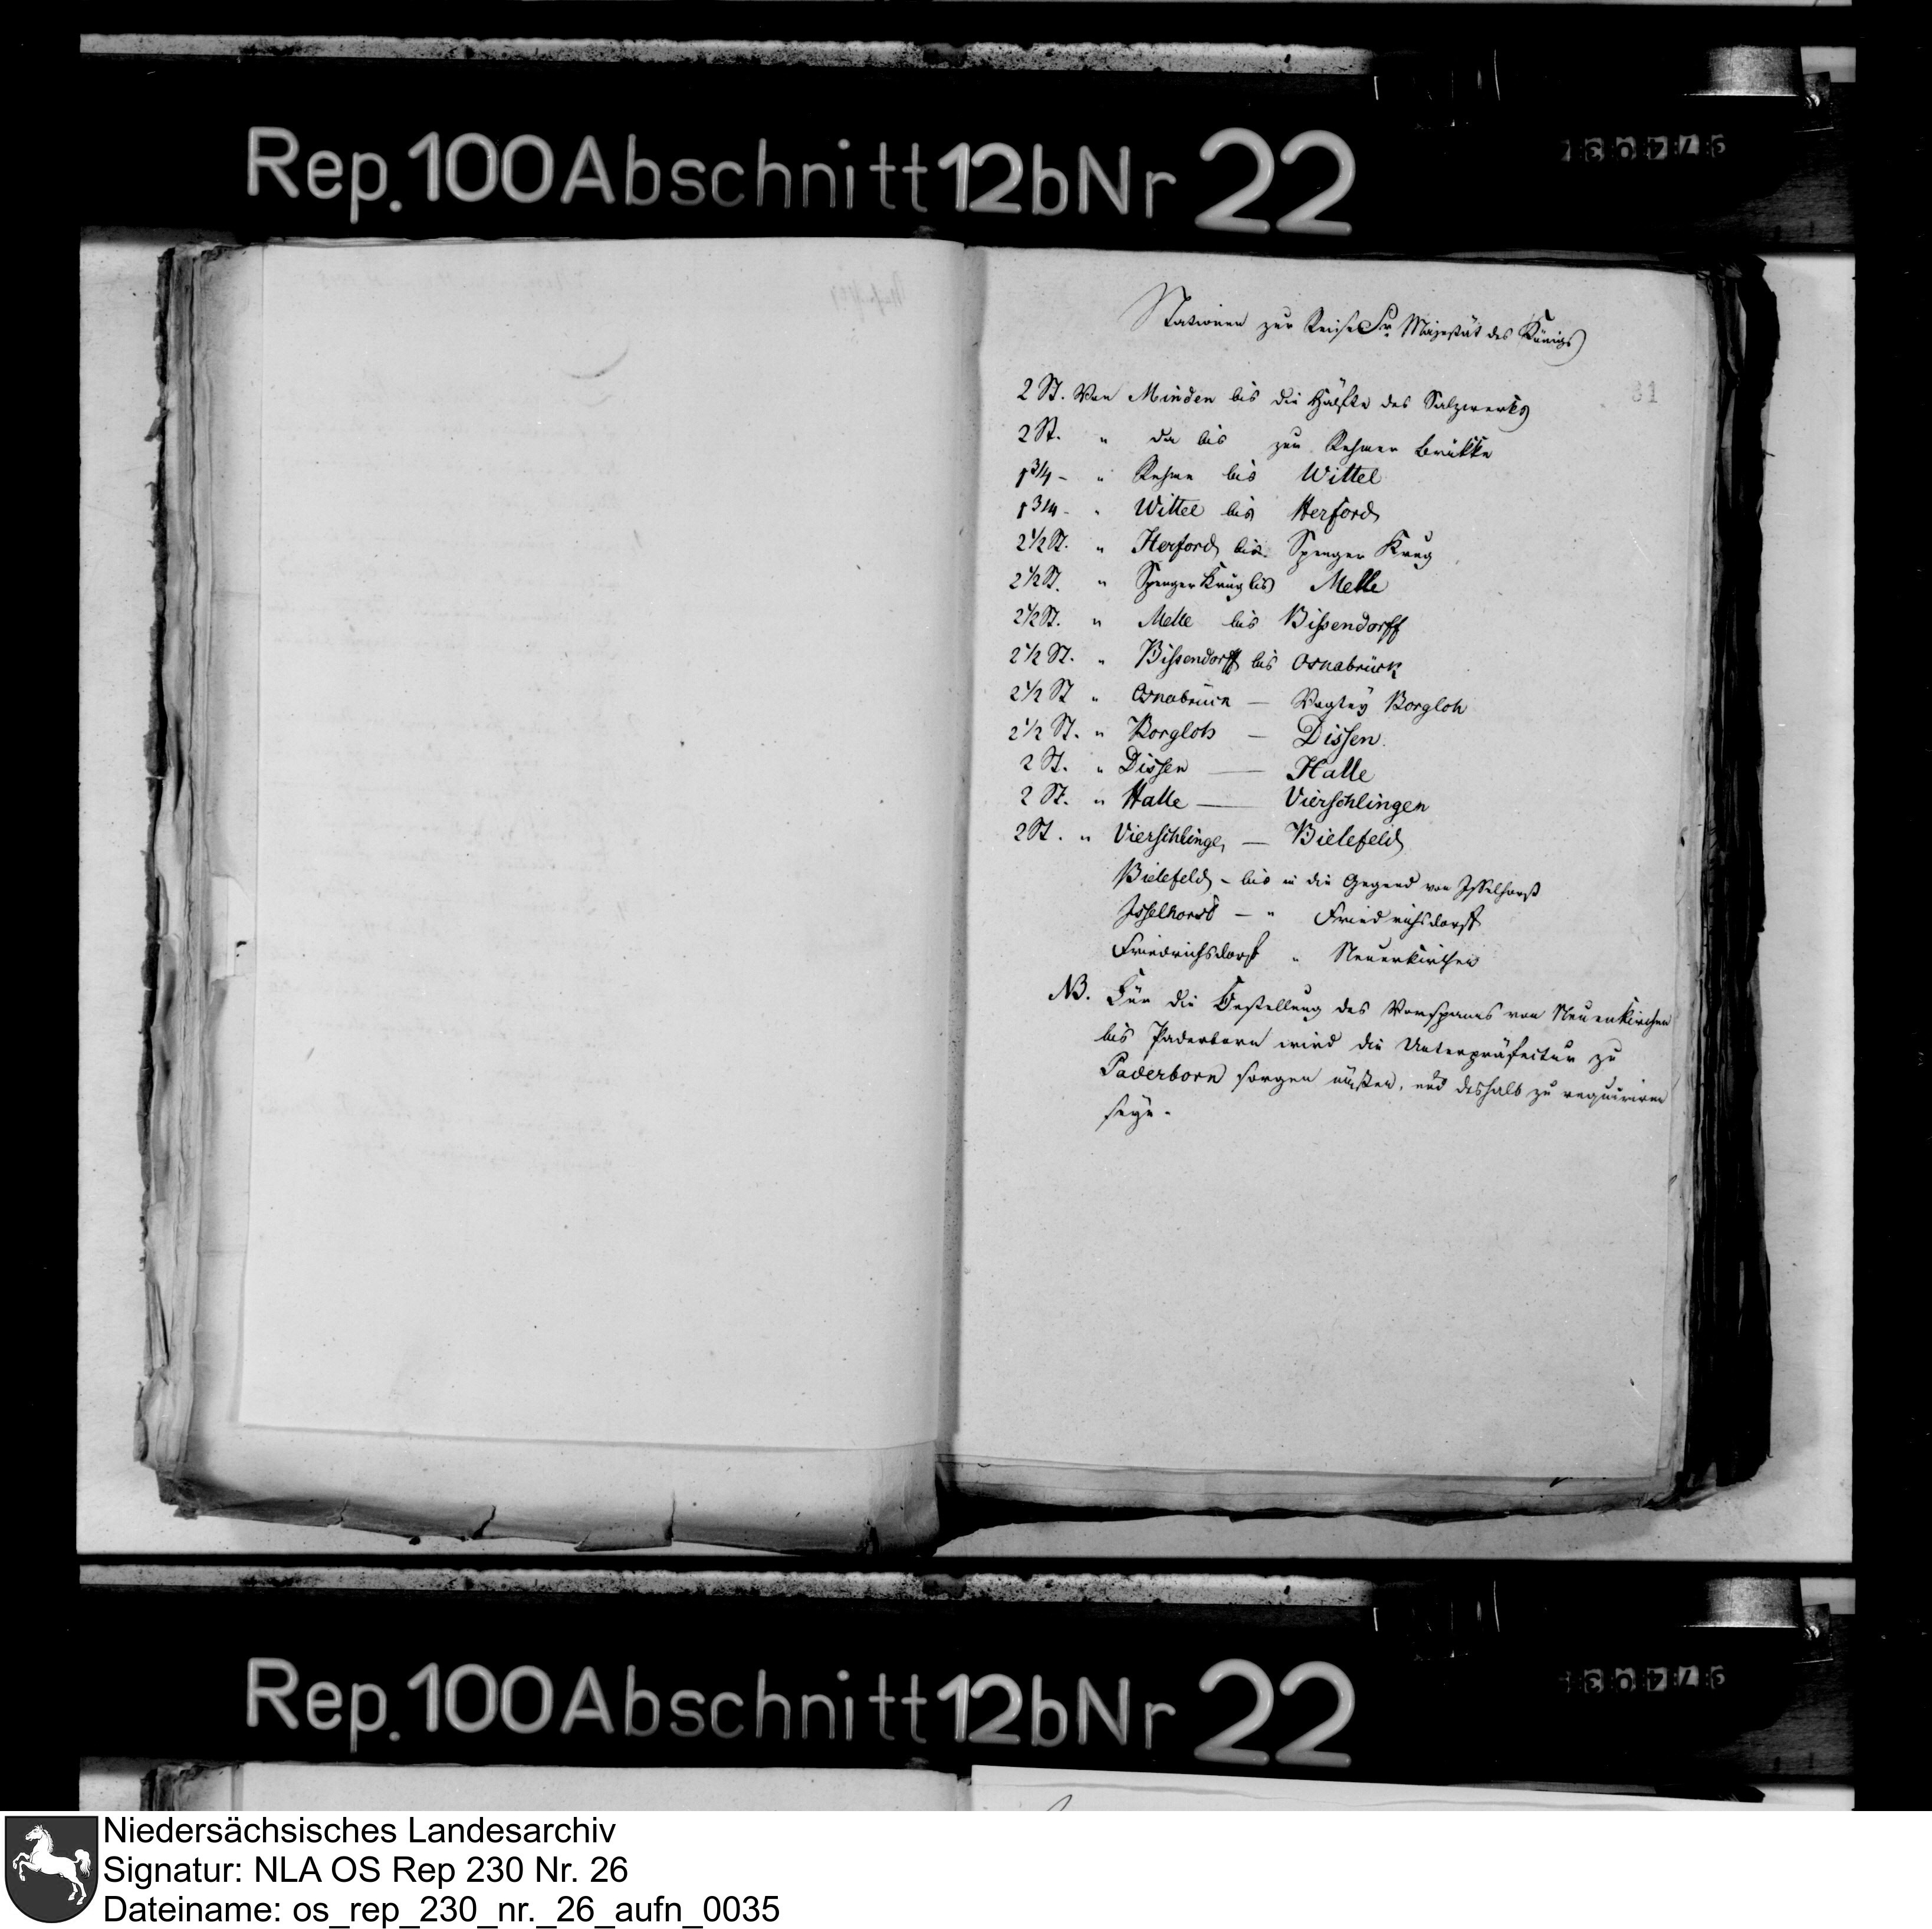 Rep.100Abschnitt12bNr 22
Stationen zur Reise Sr Majestät des Königs
81
2 St. Von Minden bis die Hälfte des Salzwerks
2 St. " da bis zur Rehmer Brükke
1 3/4 - " Rehme bis Wittel
1 3/4 - " Wittel bis Herford
2 1/2 St. " Herford bis Spenger Krug
2 1/2 St. " Spenger Krug bis Melle
2 1/2 St. " Melle bis Bissendorff
2 1/2 St. " Bissendorff bis Osnabrück
2 1/2 St " Osnabrück — Vogtey Borgloh
2 1/2 St. " Borgloh — Dissen
2 St. " Dissen — Halle
2 St. " Halle — Vierschlingen
2 St. " Vierschlingen — Bielefeld
Bielefeld - bis in die Gegend von Isselhorst
Isselhorst - " Friedrichsdorff
Friedrichsdorf " Neuenkirchen
NB. Für die Bestellung des Vorspanns von Neuenkirchen
bis Paderborn wird die Unterpräfectur zu
Paderborn sorgen müßen, und deshalb zu requiriren
seyn.
Rep.100Abschnitt12bNr 22
Niedersächsisches Landesarchiv
Signatur: NLA OS Rep 230 Nr. 26
Dateiname: os_rep_230_nr._26_aufn_0035